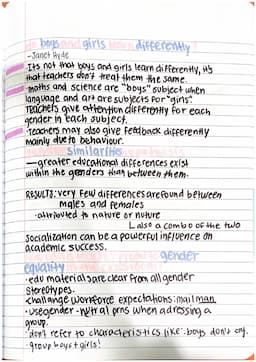 do boys and girls learn differently?
- Janet Hyde
It's not that boys and girls learn differently, it's
that teachers don't treat them the same.
- maths and science are "boys" subject when
language and art are subjects for "girls"
Teachers give attention differently for each
gender in each subject.
- Teachers may also give feedback differently
mainly due to behaviour.
similarities
— greater educational differences exist
within the genders than between them.
RESULTS: very few differences are found between
males and females
- attributed to nature or nuture
↳ also a combo of the two
Socialization can be a powerful influence on
academic success.
gender
equality
- edu materials are clear from all gender
stereotypes.
- challange workforce expectations: mailman
- use gender-nutral prns when adressing a
group.
- don't refer to characteristics like: boys don't cry.
- group boys + girls!